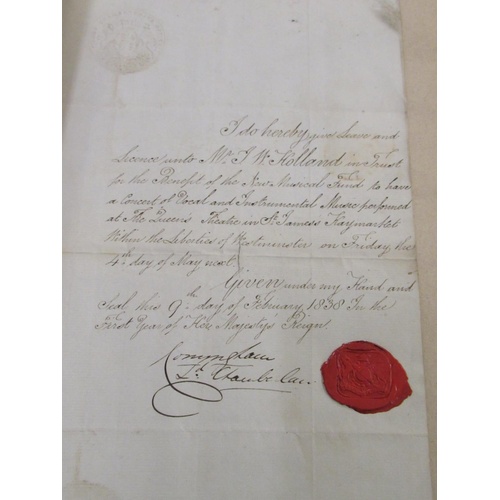 I do hereby give Leave and
Licence unto Mr. J W Holland in Trust
for the Benefit of the New Musical Fund to have
a Concert of Vocal and Instrumental Music performed
at The Queens Theatre in St. James's Haymarket
Within the Liberties of Westminster on Friday, the
4th. day of May next
Given under my Hand and
Seal this 9th. day of February 1838 In the
First Year of Her Majesty's Reign
Conyngham
Ld. Chamberlain